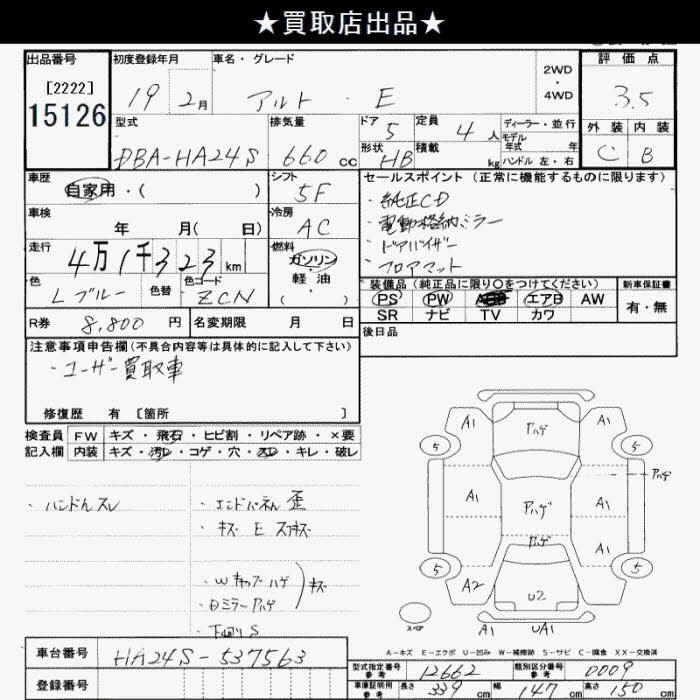 ★買取店出品★
出品番号 初度登録年月 車名・グレード 2WD・4WD 評価点
[2222]
15126
19 2月 アルト・E 3.5
外装 内装
C B
型式 排気量 ドア 定員 ディーラー・並行
DBA-HA24S 660cc 5 4人 モデル年式 年
形状 積載
HB kg ハンドル 左・右
車歴 シフト セールスポイント(正常に機能するものに限ります)
自家用・( ) 5F ・純正CD
車検 冷房 ・電動格納ミラー
年 月( 日) AC ・ドアバイザー
走行 燃料 ・フロアマット
4万1千323km ガソリン・軽油・( )
色 色替 色コード 装備品(純正品に限り○をつけてください) 新車保証書
Lブルー ZCN PS PW エアB AW 有・無
SR ナビ TV カワ
R券 8,800円 名変期限 月 日 後日品
注意事項申告欄(不具合内容等は具体的に記入して下さい)
・ユーザー買取車
修復歴 有 [箇所 ]
検査員 FW キズ・飛石・ヒビ割・リペア跡・×要
記入欄 内装 キズ・汚レ・コゲ・穴・スレ・キレ・破レ
・ハンドルスレ ・エンドパネル歪
・キズ E スリキズ
・Wキャブーハゲ キズ
・Dミラーハゲ
・下回りS
A1 Pハゲ A1
5 5
Pハゲ
A1 Pハゲ A1
Pハゲ A1
5 5
A2 U2
スペア A1 UA1
A-キズ E-エクボ U-凹み W-補修跡 S-サビ C-腐食 XX-交換済
車台番号 HA24S-537563
登録番号
型式指定番号 参考 12662 類別区分番号 参考 0009
車庫証明用 参考 長さ 339cm 幅 147cm 高さ 150cm